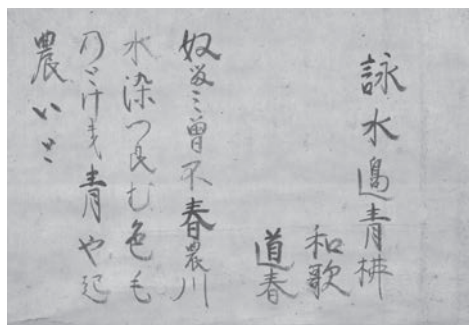 詠水邊青柳
和歌
道春
奴留ミ曽不春農川
水染つ良む色毛
乃とけき青や起
農いと